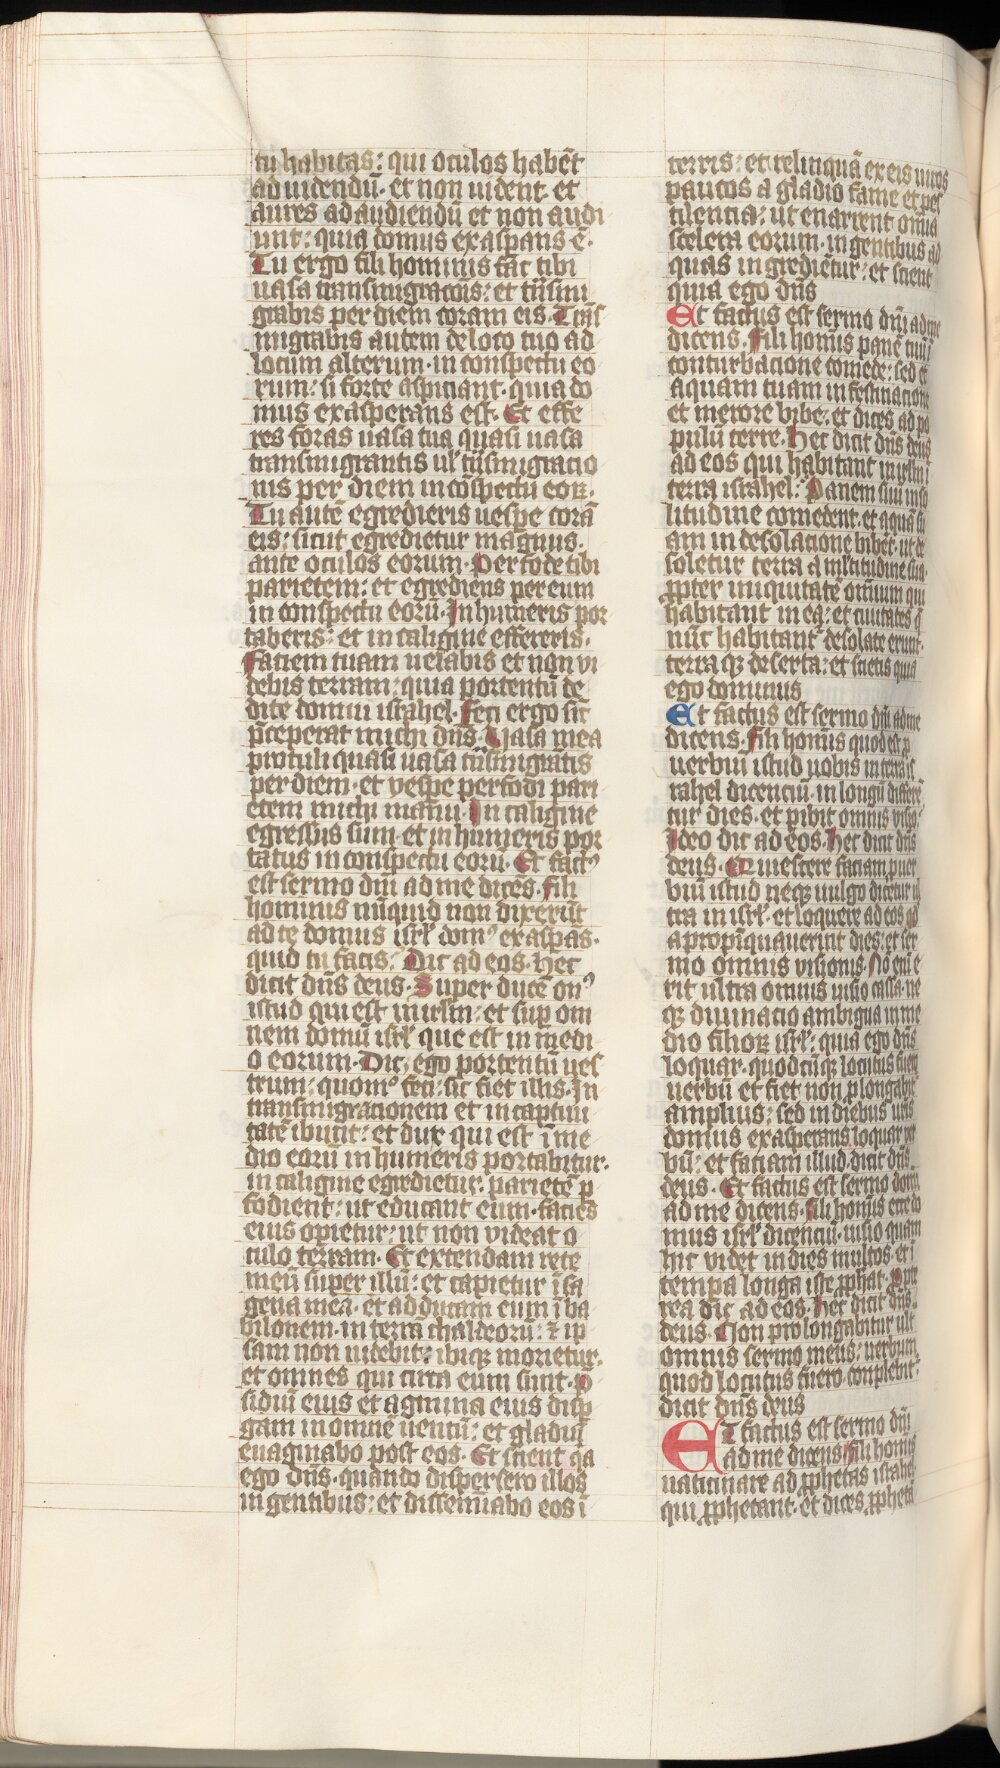 tu habitas: qui oculos habēt
ad uidendū. et non uident. et
aures ad audiendū et non audi
unt: quia domus exasꝑans ē.
Tu ergo fili hominis fac tibi
uasa transmigracōis: et tͣnsmi
grabis per diem coram eis. Trās
migrabis autem de loco tuo ad
locum alterum. in conspectu eo
rum: si forte aspiciant. quia do
mus exasperans est. Et effe
res foras uasa tua quasi uasa
transmigrantis ul' tͣnsmigracio
nis per diem in cōspectu eoꝝ.
Tu autē egredieris uesꝑe corā
eis: sicut egredietur magnus.
ante oculos eorum. Perfode tibi
parietem: et egrediens per eum
in conspectu eorū. In humeris por
taberis: et in caligine effereris.
Faciem tuam uelabis et non vi
debis terram: quia portentū de
di te domui israhel. Feci ergo sic̄
p̄ceperat michi dn̄s. Vasa mea
protuli quasi uasa tͣnsmigrātis
per diem. et vesꝑe perfodi pari
etem michi manu. In caligine
egressus sum. et in humeris por
tatus in conspectu eorū. Et factꝰ
est sermo dn̄i ad me dicēs. Fili
hominis nūquid non dixerūt
ad te domus isrl' domꝰ exasꝑās.
quid tu facis: Dic ad eos. Hec
dicit dn̄s deus. Super ducē onꝰ
istud qui est in irlm̄: et suꝑ om
nem domū isrl' que est in medi
o eorum. Dic, ego portentū ues
trum: quomō feci: sic fiet illis. In
transmigracionem et in captiui
tatē ibunt: et dux qui est ī me
dio eorū in humeris portabitur.
in caligine egredietur. parietē ꝑ
fodient: ut educant eum. facies
eius opietur: ut non videat o
culo terram. Et extendam rete
meū super illū: et capietur ī sa
gena mea. et adducam eum ī ba
bilonem. in terra chaldeorū: ⁊ ip
sam non uidebit: ibiqꝫ morietur.
et omnes qui circa eum sunt. P̄
sidiū eius et agmina eius disꝑ
gam in omnē uentū: et gladiū
euaginabo post eos. Et scient qͣa
ego dn̄s. quando dispersero illos
in gentibus: et disseminabo eos ī
terris: et relinquā ex eis uiros
paucos a gladio fame et pes
tilencia: ut enarrent om̄ia
scelera eorum. in gentibus ad
quas ingrediētur: et scient
quia ego dn̄s
Et factus est sermo dn̄i ad me
dicens. Fili homīs panē tuū ī
conturbacione comede: sed et
aquam tuam in festinacione
et merore bibe. et dices ad po
pulū terre. Hec dicit dn̄s deus
ad eos qui habitant in irlm̄ ī
terra israhel: Panem suū in so
litudine comedent. et aquā su
am in desolacione bibēt. ut de
soletur terra a ml'titudine sua.
ꝓpter iniquitatē om̄ium qui
habitant in ea: et ciuitates q̄
nūc habitant desolate erunt.
terraqꝫ deserta: et scietis quia
ego dominus
Et factus est sermo dn̄i ad me
dicens. Fili homīs quod est ꝓ
uerbiū istud uobis in terra is
rahel dicenciū. in longū differē
tur dies. et ꝑibit omnis visio:
Ideo dic ad eos. Hec dicit dn̄s
deus. Quiescere faciam ꝓuer
biū istud neqꝫ uulgo dicetur ul
tra in isrl'. et loquere ad eos qd̄
apropīquauerint dies: et ser
mo omnis visionis. Nō enī e
rit ultra omnis uisio cassa. ne
qꝫ diuinacio ambigua in me
dio filioꝝ isrl': quia ego dn̄s
loquar. quodcūqꝫ locutus fuero
uerbū et fiet non ꝓlongabit̄
amplius: sed in diebus uris
domus exasperans loquar ver
bū: et faciam illud. dicit dn̄s
deus. Et factus est sermo domī
ad me dicens. Fili homīs ecce do
mus isrl' dicenciū. uisio quam
hic videt in dies multos. et ī
tempa longa iste ꝓphat. Ꝓpte
rea dic ad eos. Hec dicit dn̄s
deus. Non prolongabitur ult
omnis sermo meus: uerbum
quod locutus fuero complebit̄
dicit dn̄s deus
Et factus est sermo dn̄i
ad me dicens. Fili homīs
uaticinare ad ꝓphetas israhel
qui ꝓphetant. et dices ꝓpheta